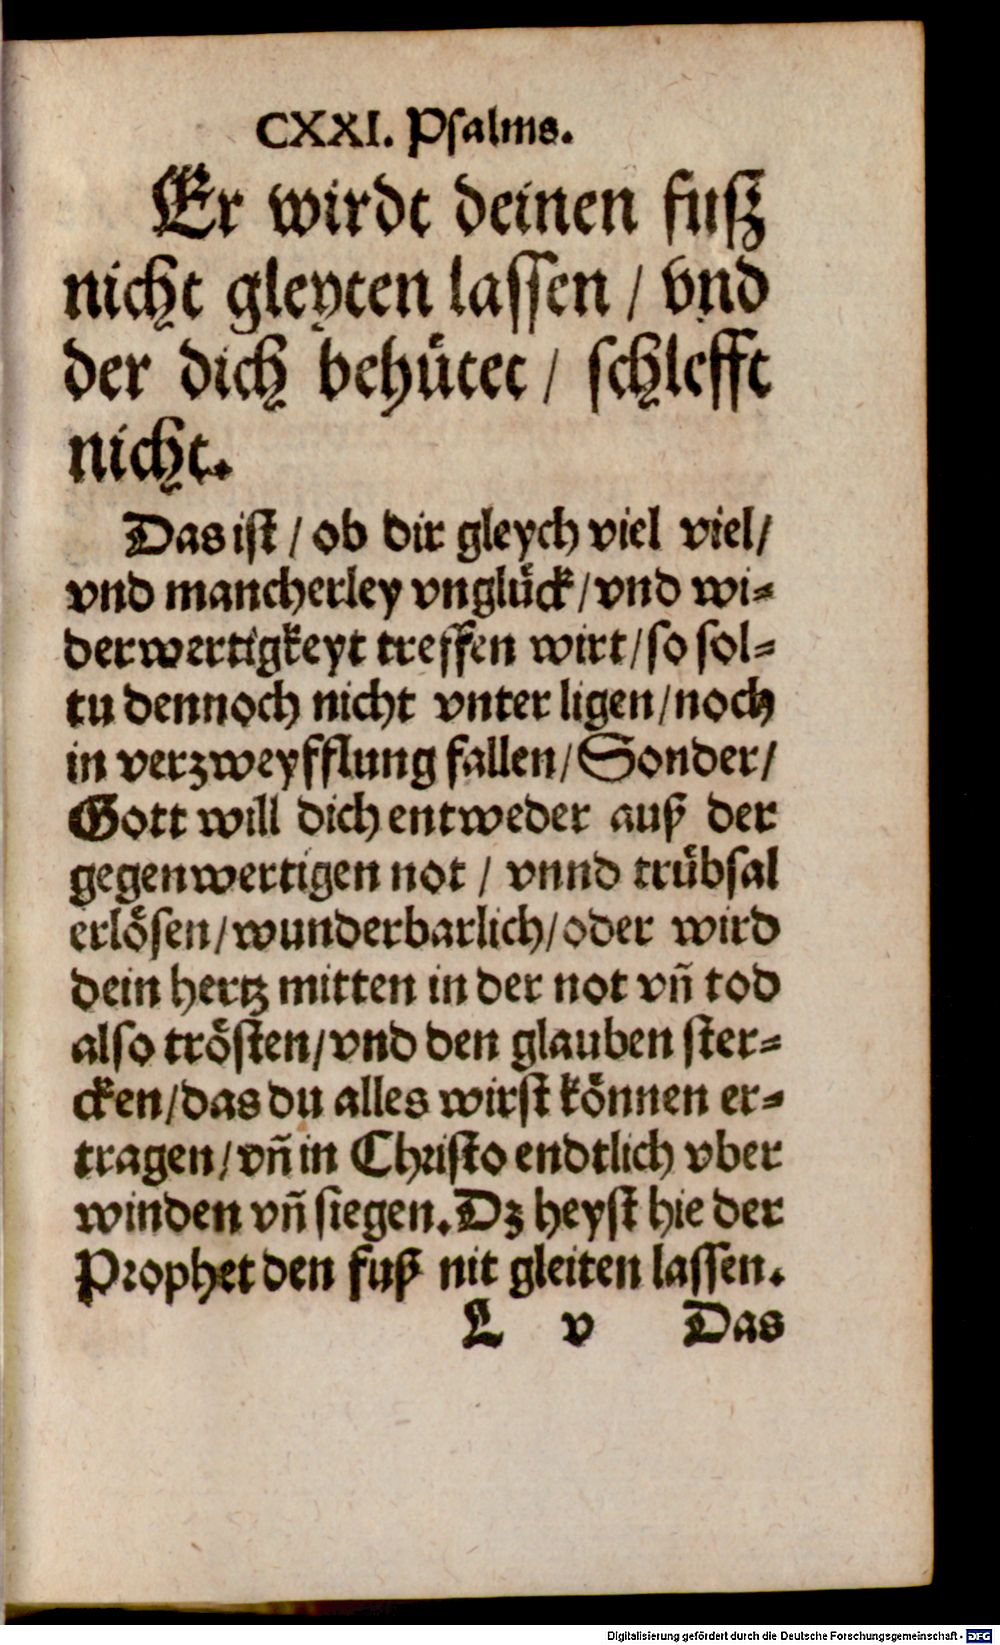 CXXI. Psalms.
Er wirdt deinen fusz
nicht gleyten lassen / vnd
der dich behütet / schlefft
nicht.
Das ist / ob dir gleych viel viel/
vnd mancherley vnglück / vnd wi-
derwertigkeyt treffen wirt / so sol-
tu dennoch nicht vnter ligen / noch
in verzweyfflung fallen / Sonder /
Gott will dich entweder auß der
gegenwertigen not / vnnd trübsal
erlösen / wunderbarlich / oder wird
dein hertz mitten in der not vñ tod
also trösten / vnd den glauben ster-
cken / das du alles wirst können er-
tragen / vñ in Christo endtlich vber
winden vñ siegen. Dz heyst hie der
Prophet den fuß nit gleiten lassen.
L v Das
Digitalisierung gefördert durch die Deutsche Forschungsgemeinschaft - DFG